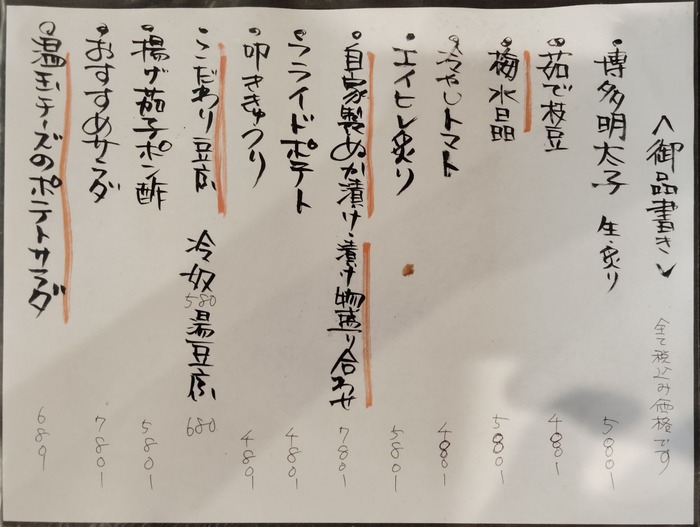 〈御品書き〉
全て税込み価格です
博多明太子 生・炙り 580-
茹で枝豆 480-
梅水晶 580-
冷やしトマト 480-
エイヒレ炙り 580-
自家製ぬか漬け・漬け物盛り合わせ 780-
フライドポテト 480-
叩ききゅうり 480-
こだわり豆腐 冷奴 580 湯豆腐 680
揚げ茄子ポン酢 580-
おすすめサラダ 780-
温玉チーズのポテトサラダ